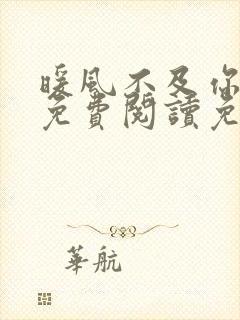 暖風不及你
免費閱讀免
華航